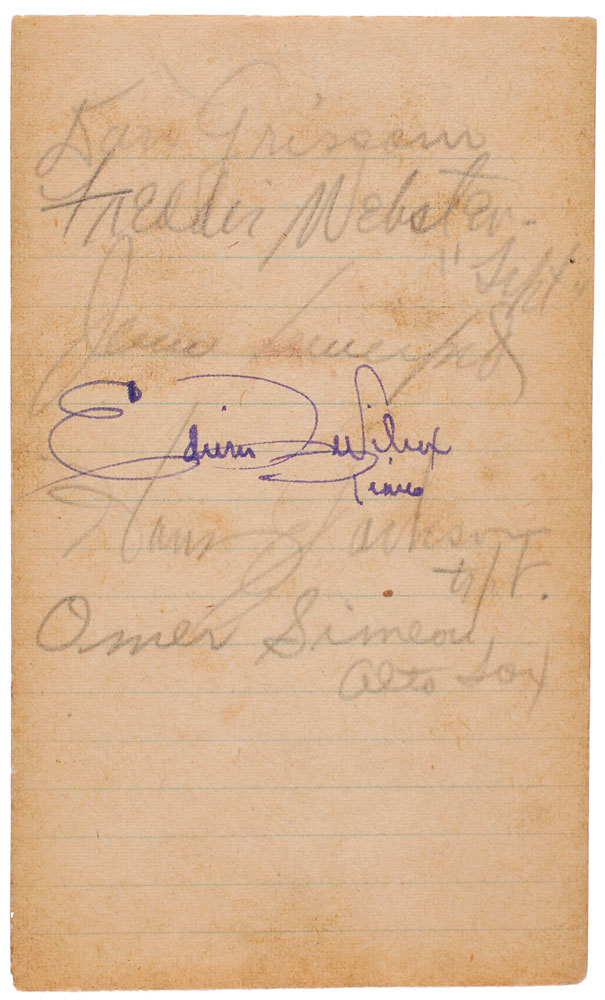 Dan Grissom
Freddie Webster -
"Trpt"
Edwin Wilcox
Piano
Harry Jackson
trpt.
Omer Simeon
Alto Sax